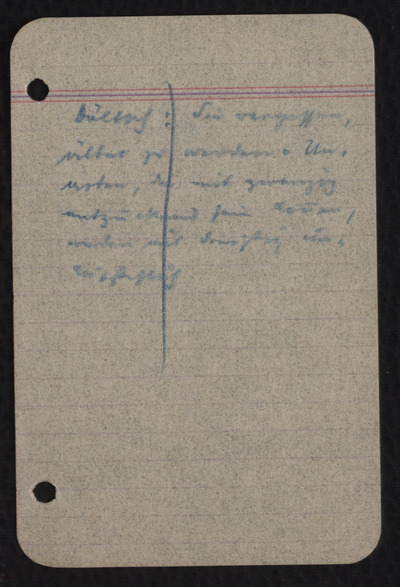 Sie vergessen,
älter zu werden. Un-
arten, die mit zwanzig
entzückend sein können,
werden mit dreißig un-